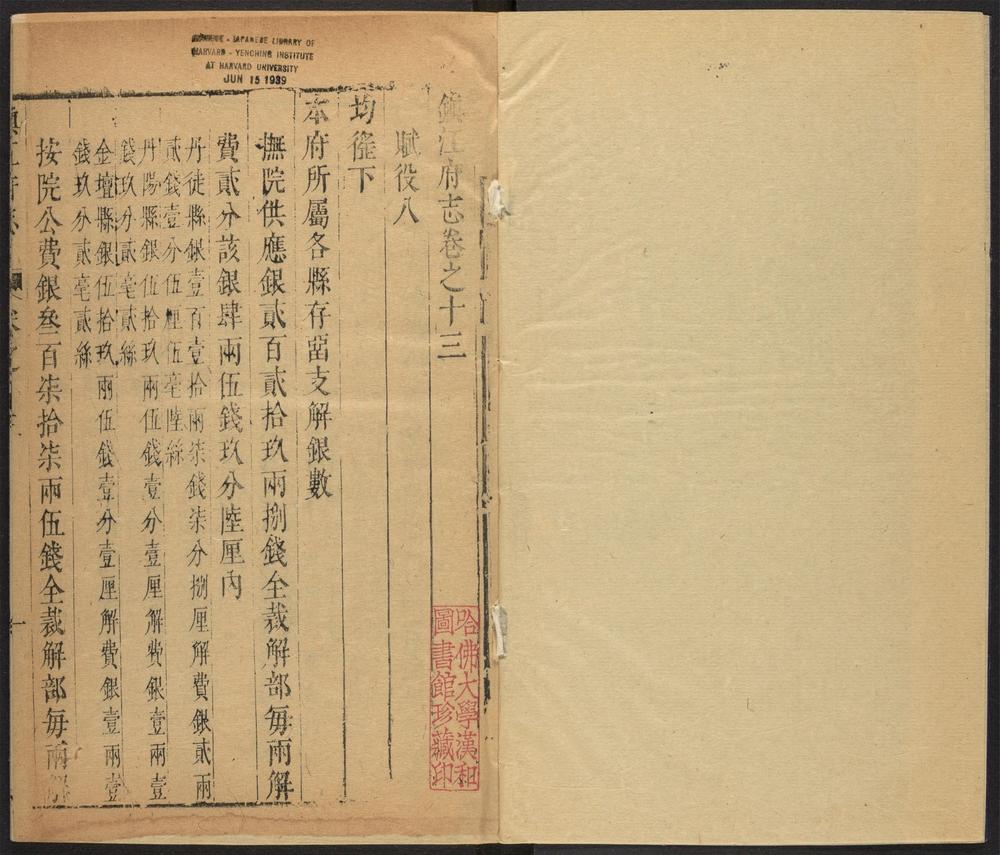 JAPANESE LIBRARY OF
HARVARD-YENCHING INSTITUTE
AT HARVARD UNIVERSITY
JUN 15 1939
鎮江府志卷之十三
賦役八
均徭下
本府所屬各縣存畱支解銀數
撫院供應銀貳百貳拾玖兩捌錢全裁解部每兩解
費貳分該銀肆兩伍錢玖分陸厘內
丹徒縣銀壹百壹拾兩柒錢柒分捌厘解費銀貳兩
貳錢壹分伍厘伍毫陸絲
丹陽縣銀伍拾玖兩伍錢壹分壹厘解費銀壹兩壹
錢玖分貳毫貳絲
金壇縣銀伍拾玖兩伍錢壹分壹厘解費銀壹兩壹
錢玖分貳毫貳絲
按院公費銀叄百柒拾柒兩伍錢全裁解部每兩解
哈佛大學漢和
圖書館珍藏印